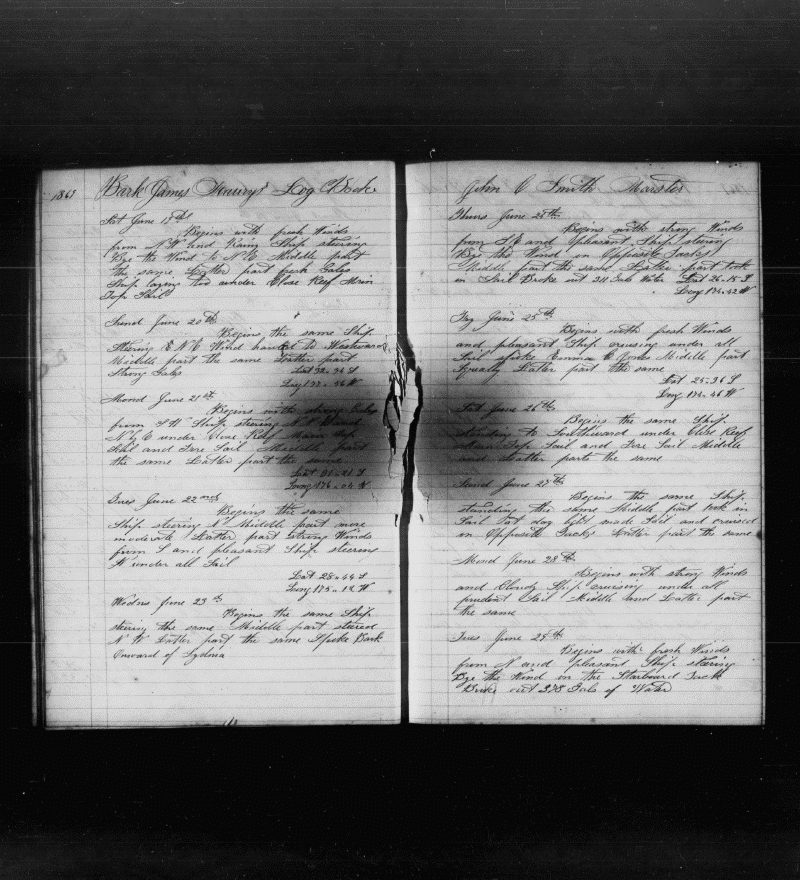 1863
Bark James Maurys Log Book
Sat June 19th
Begins with fresh Winds
from N W and Rainy Ship steering
Bye the Wind to N E Middle part
the same Latter part fresh Gales
Ship laying too under Close Reef Main
Top Sail
Sund June 20th
Begins the same Ship
Steering E N E Wind hauled to Westward
Middle part the same Latter part
Strong Gales Lat 32-34 S
Long 177-36 W
Mond June 21st
Begins with strong Gales
from S W Ship steering
N by E under Close Reef Main Top
Sail and Fore Sail Middle part
the same Latter part the same
Lat 31-21 S
Long 176-04 W
Tues June 22nd
Begins the same
Ship steering N Middle part more
moderate Latter part strong Winds
from S and pleasant Ship steering
N under all Sail
Lat 28-44 S
Long 175-12 W
Wedns June 23th
Begins the same Ship
steering the same Middle part steered
N W Latter part the same Spoke Bark
Onward of Sydnia
John C Smith Marster
Thurs June 24th
Begins with strong Winds
from S E and Pleasant Ship steering
Bye the Wind on Opposite Tacks
Middle part the same Latter part took
in Sail Broke out 311 Gals Water Lat 26-15 S
Long 174-42 W
Fry June 25th
Begins with fresh Winds
and pleasant Ship cruising under all
Sail spoke Emma C Jones Middle part
Squally Latter part the same
Lat 25-36 S
Long 174-46 W
Sat June 26th
Begins the same Ship
standing to Southward under Close Reef
Main Top Sail and Fore Sail Middle
and Latter parts the same
Sund June 27th
Begins the same Ship
standing the same Middle part took in
Sail Last day light made Sail and cruised
on Opposite Tacks Latter part the same
Mond June 28th
Begins with strong Winds
and Cloudy Ship cruising under all
prudent Sail Middle and Latter part
the same
Tues June 29th
Begins with fresh Winds
from N and pleasant Ship steering
Bye the Wind on the Starboard Tack
Broke out 378 Gals of Water